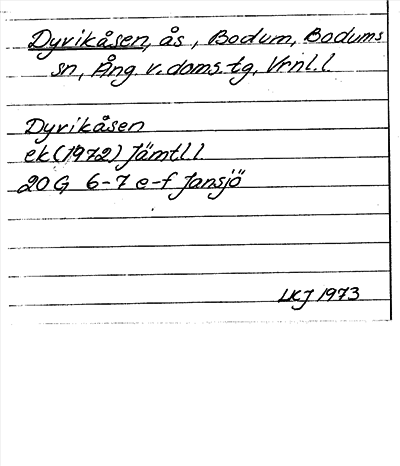 Dyvikåsen, ås, Bodum, Bodums
sn, Ång. v. doms.tg, Vrnl.l.
Dyvikåsen
ek (1972) Jämtl l
20 G 6-7 e-f Jansjö
LKJ 1973